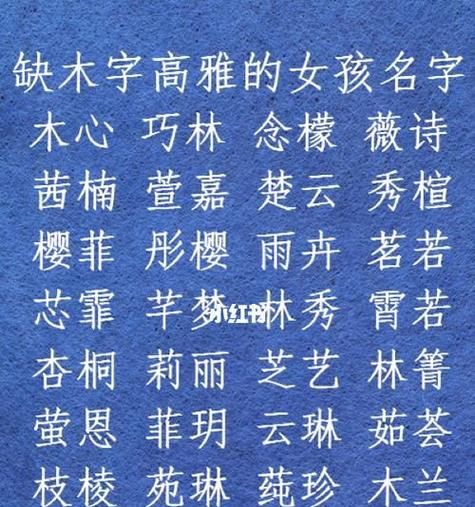 缺木字高雅的女孩名字
木心 巧林 念檬 薇诗
茜楠 萱嘉 楚云 秀楦
樱菲 彤樱 雨卉 茗若
芯霏 芊梦 林秀 霄若
小红书
杏桐 莉丽 芝艺 林箐
萤恩 菲玥 云琳 茹荟
枝棱 苑琳 莼珍 木兰